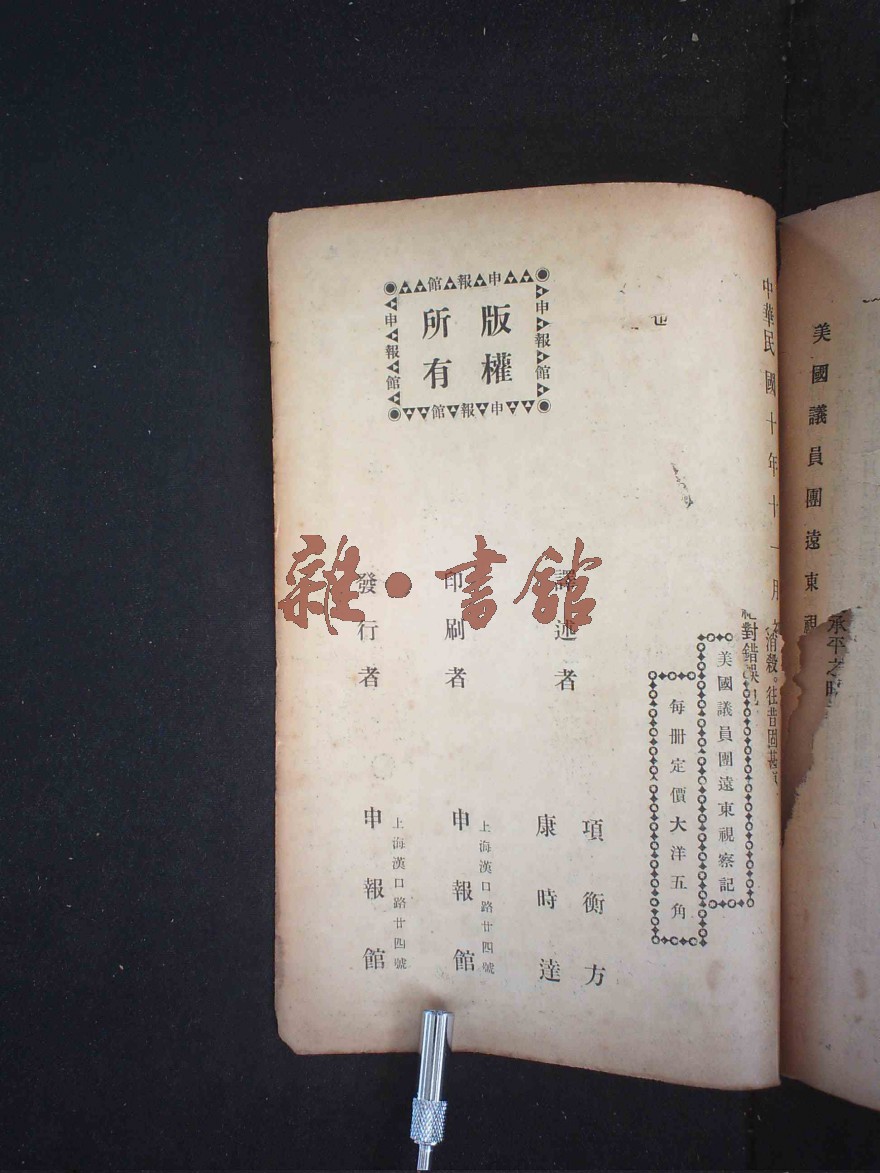 美國議員團遠東視
承平之時
中華民國十年十一月
消殺。往昔固甚
絕對錯誤
美國議員團遠東視察記
每册定價大洋五角
譯述者
項衡方
康時達
印刷者
上海漢口路廿四號
申報館
發行者
上海漢口路廿四號
申報館
版權
所有
申報館
申報館
申報館
申報館
雜·書館